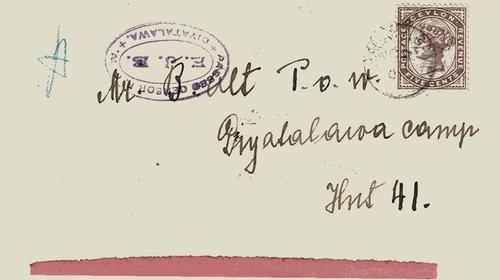 CEYLON
POSTAGE
REVENUE
FIVE CENTS
PASSED CENSOR
F.J.B
DIYATALAWA.
Mr B. Ult P.o.w.
Diyatalawa camp
Hut 41.